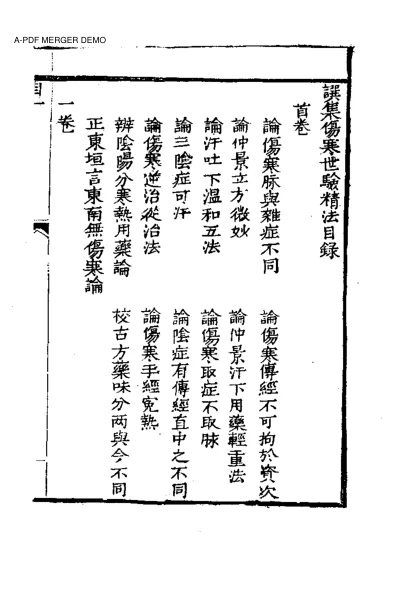 A-PDF MERGER DEMO
譔集傷寒世驗精法目錄
首卷
論傷寒脉與雜症不同
論傷寒傳經不可拘於資次
論仲景立方微妙
論仲景汗下用藥輕重法
論汗吐下温和五法
論傷寒取症不取脉
論三陰症可汗
論陰症有傳經直中之不同
論傷寒逆治從治法
論傷寒手經寃熱
辨陰陽分寒熱用藥論
校古方藥味分两與今不同
正東垣言東南無傷寒論
一卷